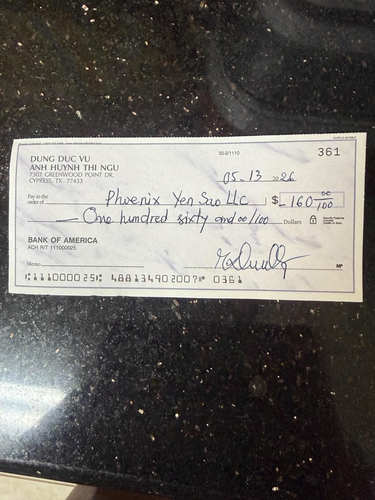 DUNG DUC VU
ANH HUYNH THI NGU
7307 GREENWOOD POINT DR.
CYPRESS, TX 77433
32-2/1110
361
05.13 2026
Pay to the order of Phoenix Yen Sao LLC $ 160 00/100
One hundred sixty and 00/100 Dollars
BANK OF AMERICA
ACH R/T 111000025
Memo
MP
⑆111000025⑆ 488134902007⑈ 0361